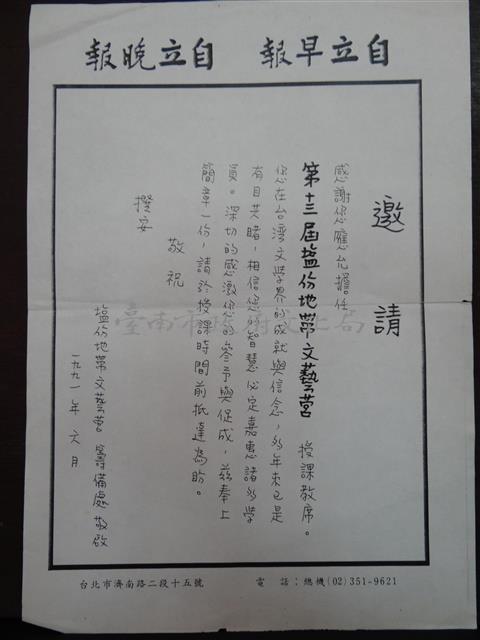 自立早報 自立晚報
邀請
感謝您應允擔任
第十三屆塩份地帶文藝營 授課教席。
您在台湾文學界的成就與信念，多年來已是
有目共睹，相信您的智慧必定嘉惠諸多學
員。深切的感激您的參予與促成，茲奉上
簡章一份，請於授課時間前抵達為盼。
敬祝
撰安
塩份地帶文藝營 籌備處 敬啟
一九九一年 六月
台北市濟南路二段十五號 電 話：總機(02)351-9621
臺南市政府文化局